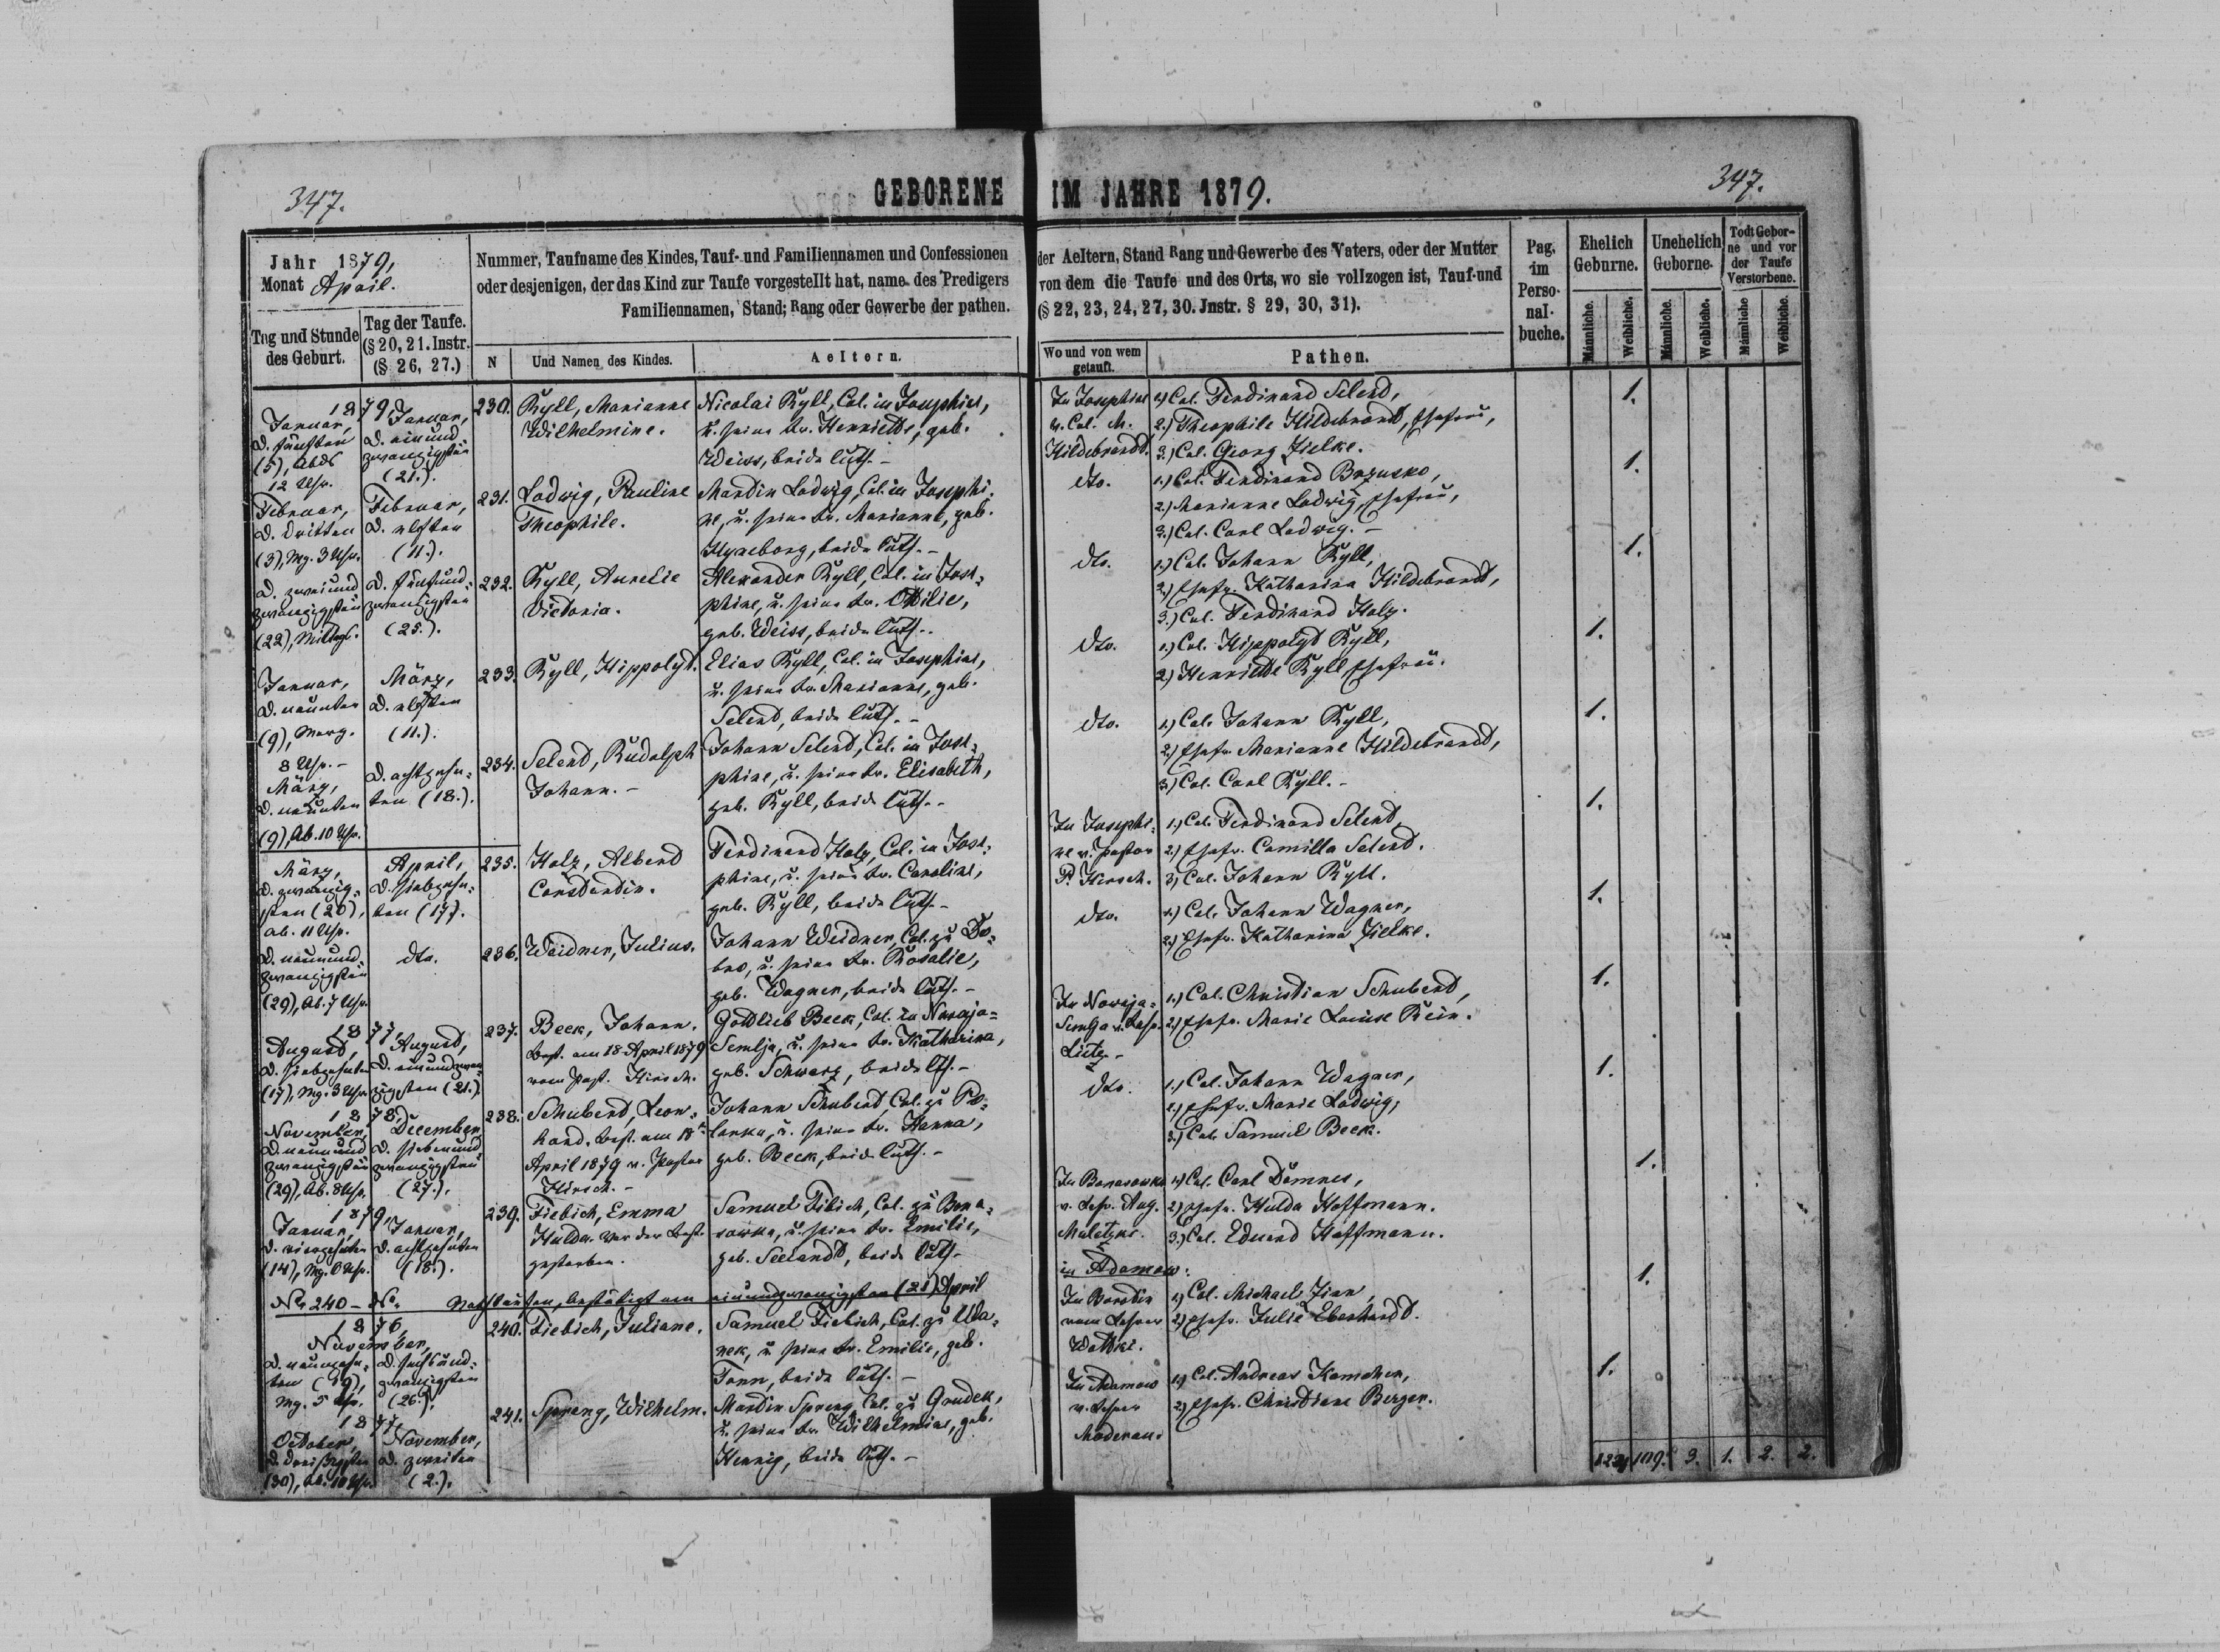 347.
GEBORENE IM JAHRE 1879.
347.
Jahr 1879,
Monat April.
Tag und Stunde des Geburt.
Tag der Taufe.
(§ 20, 21. Instr.
(§ 26, 27.)
Nummer, Taufname des Kindes, Tauf- und Familiennamen und Confessionen
oder desjenigen, der das Kind zur Taufe vorgestellt hat, name des Predigers
Familiennamen, Stand; Rang oder Gewerbe der pathen.
N
Und Namen des Kindes.
Aeltern.
der Aeltern, Stand Rang und Gewerbe des Vaters, oder der Mutter
von dem die Taufe und des Orts, wo sie vollzogen ist, Tauf-und
(§ 22, 23, 24, 27, 30. Jnstr. § 29, 30, 31).
Wo und von wem getauft.
Pathen.
Pag. im Perso-nal-buche.
Ehelich Geburne.
Unehelich Geborne.
Todt Gebor-ne und vor der Taufe Verstorbene.
Männliche.
Weibliche.
Männliche.
Weibliche.
Männliche
Weibliche.
1879,
Januar,
d. fünften
(5), Abds
12 Uhr.
Januar,
d. einund
zwanzigsten
(21.).
230.
Ryll, Marianne
Wilhelmine.
Nicolai Ryll, Col. in Josephine,
u. seine Fr. Henriette, geb.
Weiss, beide luth. -
In Josephine
v. Col. M.
Hildebrandt.
1.) Col. Ferdinand Selend,
2.) Theophile Hildebrandt, Ehefrau,
3.) Col. Georg Zielke.
1.
Februar,
d. dritten
(3), Mg. 3 Uhr.
Februar,
d. elften
(11.).
231.
Ladwig, Pauline
Theophile.
Martin Ladwig, Col. in Josephi-
ne, u. seine Fr. Marianne, geb.
beide luth. -
dto.
1.) Col. Ferdinand
2.) Marianne Ladwig, Ehefrau,
3.) Col. Carl Ladwig. -
1.
d. zweiund
zwanzigsten
(22), Mittags.
d. fünfund-
zwanzigsten
(25.).
232.
Ryll, Aurelie
Victoria.
Alexander Ryll, Col. in Jose-
phine, u. seine Fr. Ottilie,
geb. Weiss, beide luth. -
dto.
1.) Col. Johann Ryll,
2.) Ehefr. Katharina Hildebrandt,
3.) Col. Ferdinand Holz.
1.
Januar,
d. neunten
(9), Morg.
8 Uhr. -
März,
d. elften
(11.).
233.
Ryll, Hippolyt.
Elias Ryll, Col. in Josephine,
u. seine Fr. Marianne, geb.
Selend, beide luth. -
dto.
1.) Col. Hippolyt Ryll,
2.) Henriette Ryll Ehefrau.
1.
März,
d. neunten
(9), Ab. 10 Uhr.
d. achtzehn-
ten (18.).
234.
Selend, Rudolph
Johann. -
Johann Selend, Col. in Jose-
phine, u. seine Fr. Elisabeth,
geb. Ryll, beide luth. -
dto.
1.) Col. Johann Ryll,
2.) Ehefr. Marianne Hildebrandt,
3.) Col. Carl Ryll. -
1.
März,
d. zwanzig-
sten (20),
ab. 11 Uhr.
April,
d. siebzehn-
ten (17).
235.
Holz, Albert
Constantin.
Ferdinand Holz, Col. in Jose-
phine, u. seine Fr. Caroline,
geb. Ryll, beide luth. -
In Josephi-
ne v. Pastor
P. Hirsch.
1.) Col. Ferdinand Selend,
2.) Ehefr. Camilla Selend.
3.) Col. Johann Ryll.
1.
d. neunund-
zwanzigsten
(29), Ab. 7 Uhr.
dto.
236.
Weidner, Julius.
Johann Weidner, Col. zu Do-
bro, u. seine Fr. Rosalie,
geb. Wagner, beide luth. -
dto.
1.) Col. Johann Wagner,
2.) Ehefr. Katharina Zielke.
1.
1877,
August,
d. siebzehnten
(17), Mg. 3 Uhr
August,
d. einundzwan-
zigsten (21.).
237.
Beck, Johann.
Best. am 18 April 1879
vom Past. Hirsch.
Gottlieb Beck, Col. zu Nowaja-
Semlja, u. seine Fr. Katharina,
geb. Schwarz, beide lth. -
In Nowaja-
Semlja v. Lehr.
1.) Col. Christian Schubert,
2.) Ehefr. Marie Louise Rein.
1.
1878,
November,
d. neunund
zwanzigsten
(29), Ab. 8 Uhr.
December
d. siebenund
zwanzigsten
(27.).
238.
Schubert, Leon-
hard. Best. am 18t.
April 1879 v. Pastor
Hirsch. -
Johann Schubert, Col. zu Po-
lanka, u. seine Fr. Hanna,
geb. Beck, beide luth. -
dto.
1.) Col. Johann Wagner,
2.) Ehefr. Marie Ladwig,
3.) Col. Samuel Beck.
1.
1879,
Januar,
d. vierzehnten
(14), Mg. 6 Uhr.
Januar,
d. achtzehnten
(18.).
239.
Fiebich, Emma
Hulda. Vor der Best.
gestorben.
Samuel Fibich, Col. zu Bona-
sowka, u. seine Fr. Emilie,
geb. Seelandt, beide luth. -
v. Lehr. Aug.
1.) Col. Carl
2.) Ehefr. Hulda Hoffmann.
3.) Col. Eduard Hoffmann.
1.
No. 240 - No. Nothtaufen, bestätigt am einundzwanzigsten (21) April
in Adamow.
1876,
November,
d. neunzehn-
ten (19),
Mg. 5 Uhr.
d. sechsund-
zwanzigsten
(26.).
240.
Fiebich, Juliane.
Samuel Fiebich, Col. zu Wa-
nek, u. seine Fr. Emilie, geb.
beide luth. -
In Borodin
vom Lehrer
1.) Col. Michael
2.) Ehefr. Julie Eberhardt.
1.
1877,
October,
d. dreißigsten
(30), Ab. 10 Uhr.
November,
d. zweiten
(2.).
241.
Spreng, Wilhelm.
Martin Spreng, Col. zu Grudek,
u. seine Fr. Wilhelmine, geb.
Hennig, beide luth. -
In Adamow
v. Lehrer
1.) Col. Andreas
2.) Ehefr. Christiane Berger.
1.
109.
3.
1.
2.
2.